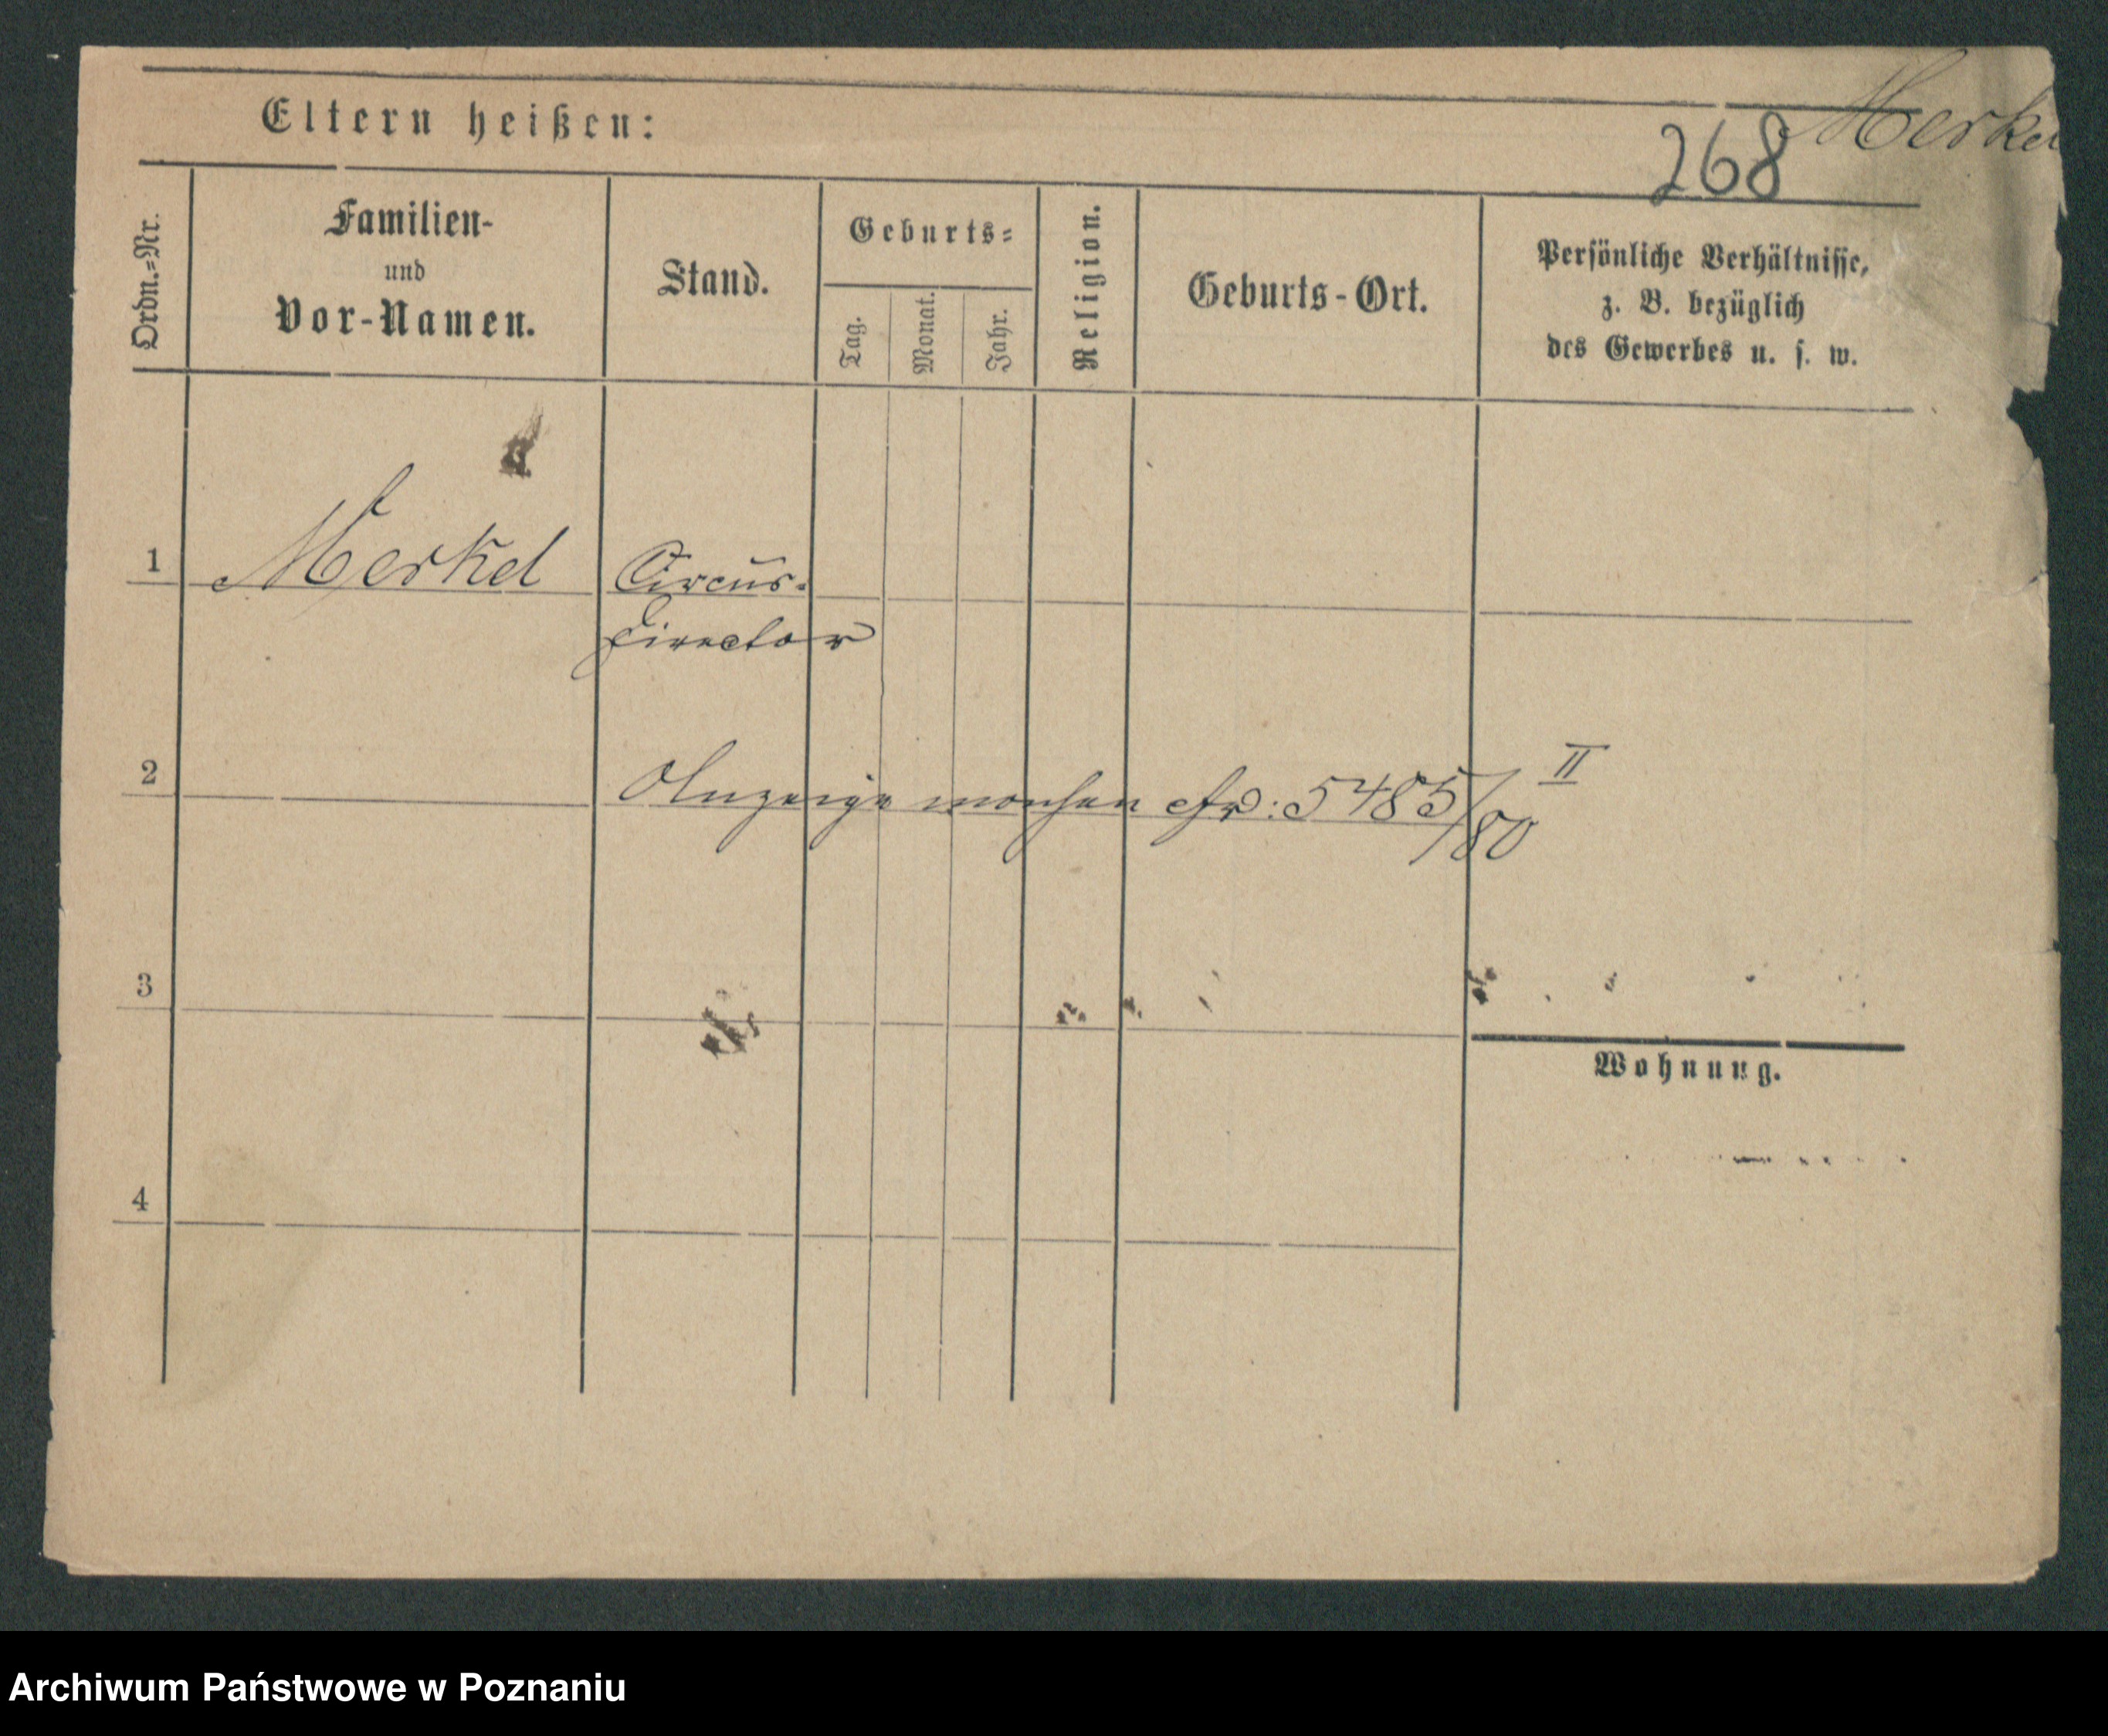 Merkel
268
Eltern heißen:
Ordn.=Nr.
Familien-
und
Vor-Namen.
Stand.
Geburts=
Tag.
Monat.
Jahr.
Religion.
Geburts-Ort.
Persönliche Verhältnisse,
z. B. bezüglich
des Gewerbes u. s. w.
1 Merkel Circus-
Director
2 Anzeige cfr: 5485/80 II
3
Wohnung.
4
Archiwum Państwowe w Poznaniu